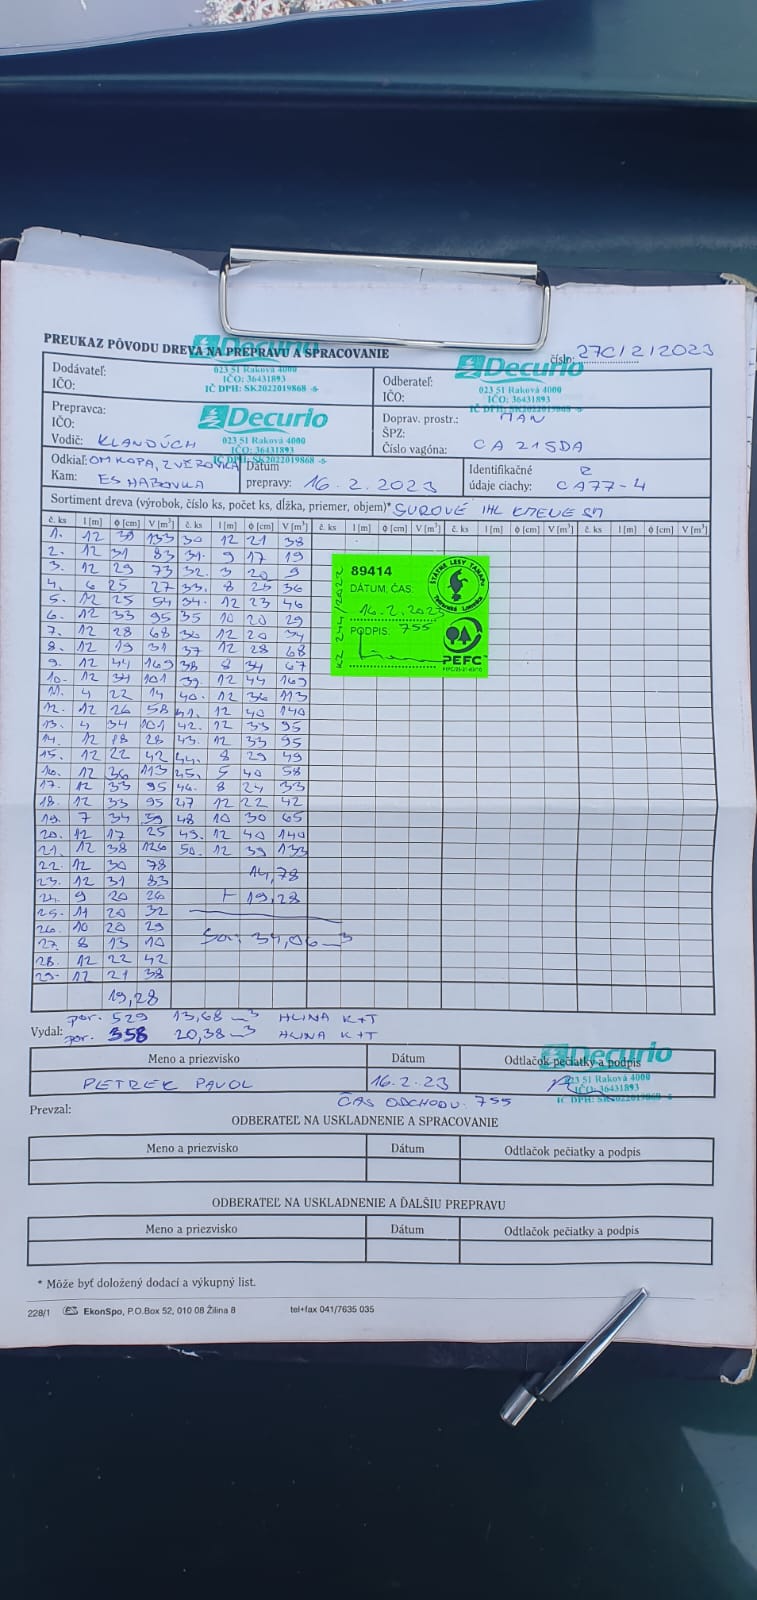 PREUKAZ PÔVODU DREVA NA PREPRAVU A SPRACOVANIE
číslo: 27C/2/2023
Decurio
023 51 Raková 4000
IČO: 36431893
IČ DPH: SK2022019868 -6-
Decurio
023 51 Raková 4000
IČO: 36431893
IČ DPH: SK2022019868 -6-
Dodávateľ:
IČO:
Odberateľ:
IČO:
Prepravca:
IČO:
Vodič: KLANDÚCH
Decurio
023 51 Raková 4000
IČO: 36431893
IČ DPH: SK2022019868 -6-
Doprav. prostr.: MAN
ŠPZ:
Číslo vagóna: CA 215DA
Odkiaľ: OM KOPA, ZVEROVKA
Kam: ES HABOVKA
Dátum
prepravy: 16.2.2023
Identifikačné
údaje ciachy: CA77-4
Sortiment dreva (výrobok, číslo ks, počet ks, dĺžka, priemer, objem)* SUROVÉ IHL KMENE SM
č. ks l [m] ϕ [cm] V [m³] č. ks l [m] ϕ [cm] V [m³] č. ks l [m] ϕ [cm] V [m³] č. ks l [m] ϕ [cm] V [m³] č. ks l [m] ϕ [cm] V [m³]
1. 12 39 133 30 12 21 38
2. 12 31 83 31. 9 17 19
3. 12 29 73 32. 3 20 9
4. 6 25 27 33. 8 25 36
5. 12 25 54 34. 12 23 46
6. 12 33 95 35 10 20 29
7. 12 28 68 36 12 20 34
8. 12 19 31 37 12 28 68
9. 12 44 169 38 8 34 67
10. 12 34 101 39. 12 44 169
11. 4 22 14 40. 12 36 113
12. 12 26 58 41. 12 40 140
13. 4 34 101 42. 12 33 95
14. 12 18 28 43. 12 33 95
15. 12 22 42 44. 8 29 49
16. 12 36 113 45. 5 40 58
17. 12 33 95 46. 8 24 33
18. 12 33 95 47 12 22 42
19. 7 34 59 48 10 30 65
20. 12 17 25 49. 12 40 140
21. 12 38 126 50. 12 39 133
22. 12 30 78
14,78
23. 12 31 83
24. 9 20 26
+ 19,28
25. 11 20 32
26. 10 20 29
27. 8 13 10
34,06 m3
28. 12 22 42
29. 12 21 38
19,28
89414
DÁTUM, ČAS:
16.2.2023
PODPIS: 755
KZ 244/2022
ŠTÁTNE LESY TANAPU
Tatranská Lomnica
PEFC
por. 529 13,68 m3 HLINA K+T
Vydal: por. 358 20,38 m3 HLINA K+T
Meno a priezvisko Dátum Odtlačok pečiatky a podpis
PETREK PAVOL 16.2.23
Decurio
023 51 Raková 4000
IČO: 36431893
IČ DPH: SK2022019868 -6-
ČAS ODCHODU: 755
Prevzal:
ODBERATEĽ NA USKLADNENIE A SPRACOVANIE
Meno a priezvisko Dátum Odtlačok pečiatky a podpis
ODBERATEĽ NA USKLADNENIE A ĎALŠIU PREPRAVU
Meno a priezvisko Dátum Odtlačok pečiatky a podpis
* Môže byť doložený dodací a výkupný list.
228/1 EkonSpo, P.O.Box 52, 010 08 Žilina 8 tel+fax 041/7635 035